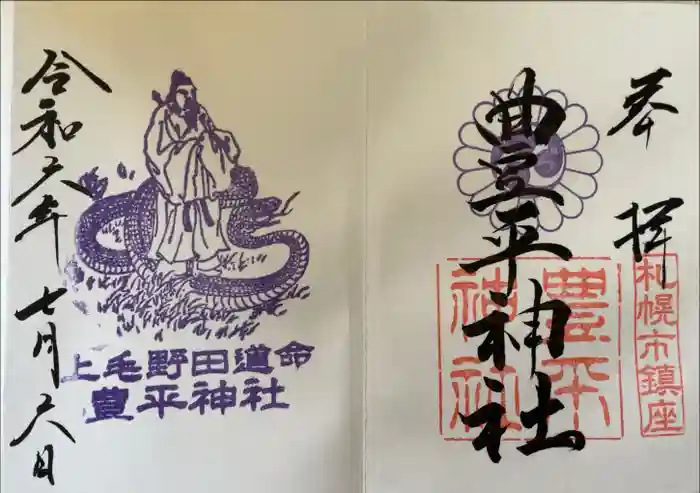 奉拝
札幌市鎮座
豊平神社
豊平神社
上毛野田道命
豊平神社
令和六年七月六日